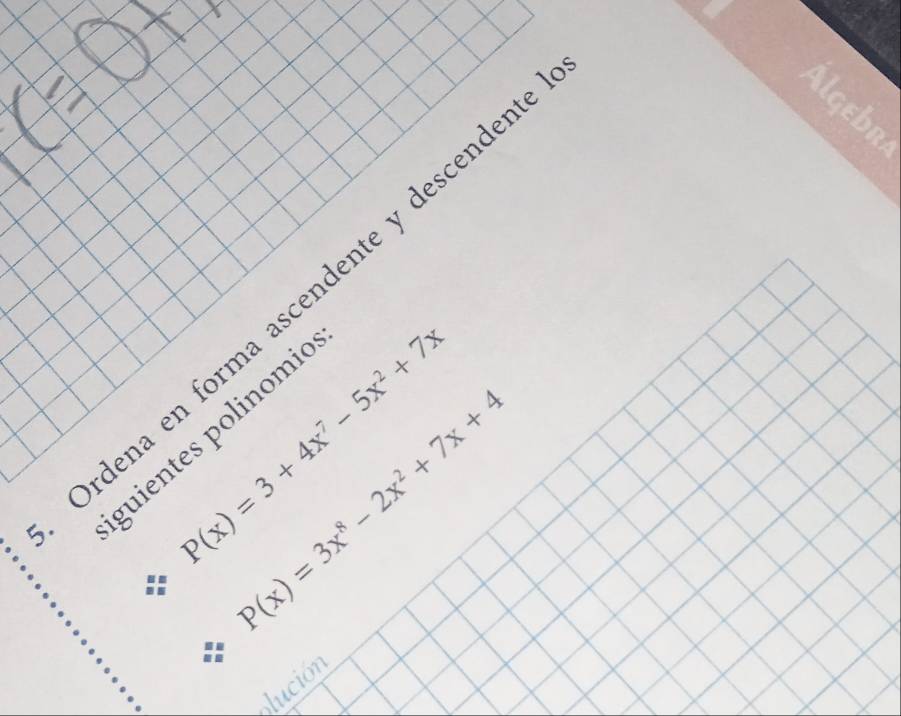 Álgebra
5. Ordena en forma ascendente y descendente los
siguientes polinomios:
P(x) = 3 + 4x⁷ − 5x² + 7x
P(x) = 3x⁸ − 2x² + 7x + 4
olución